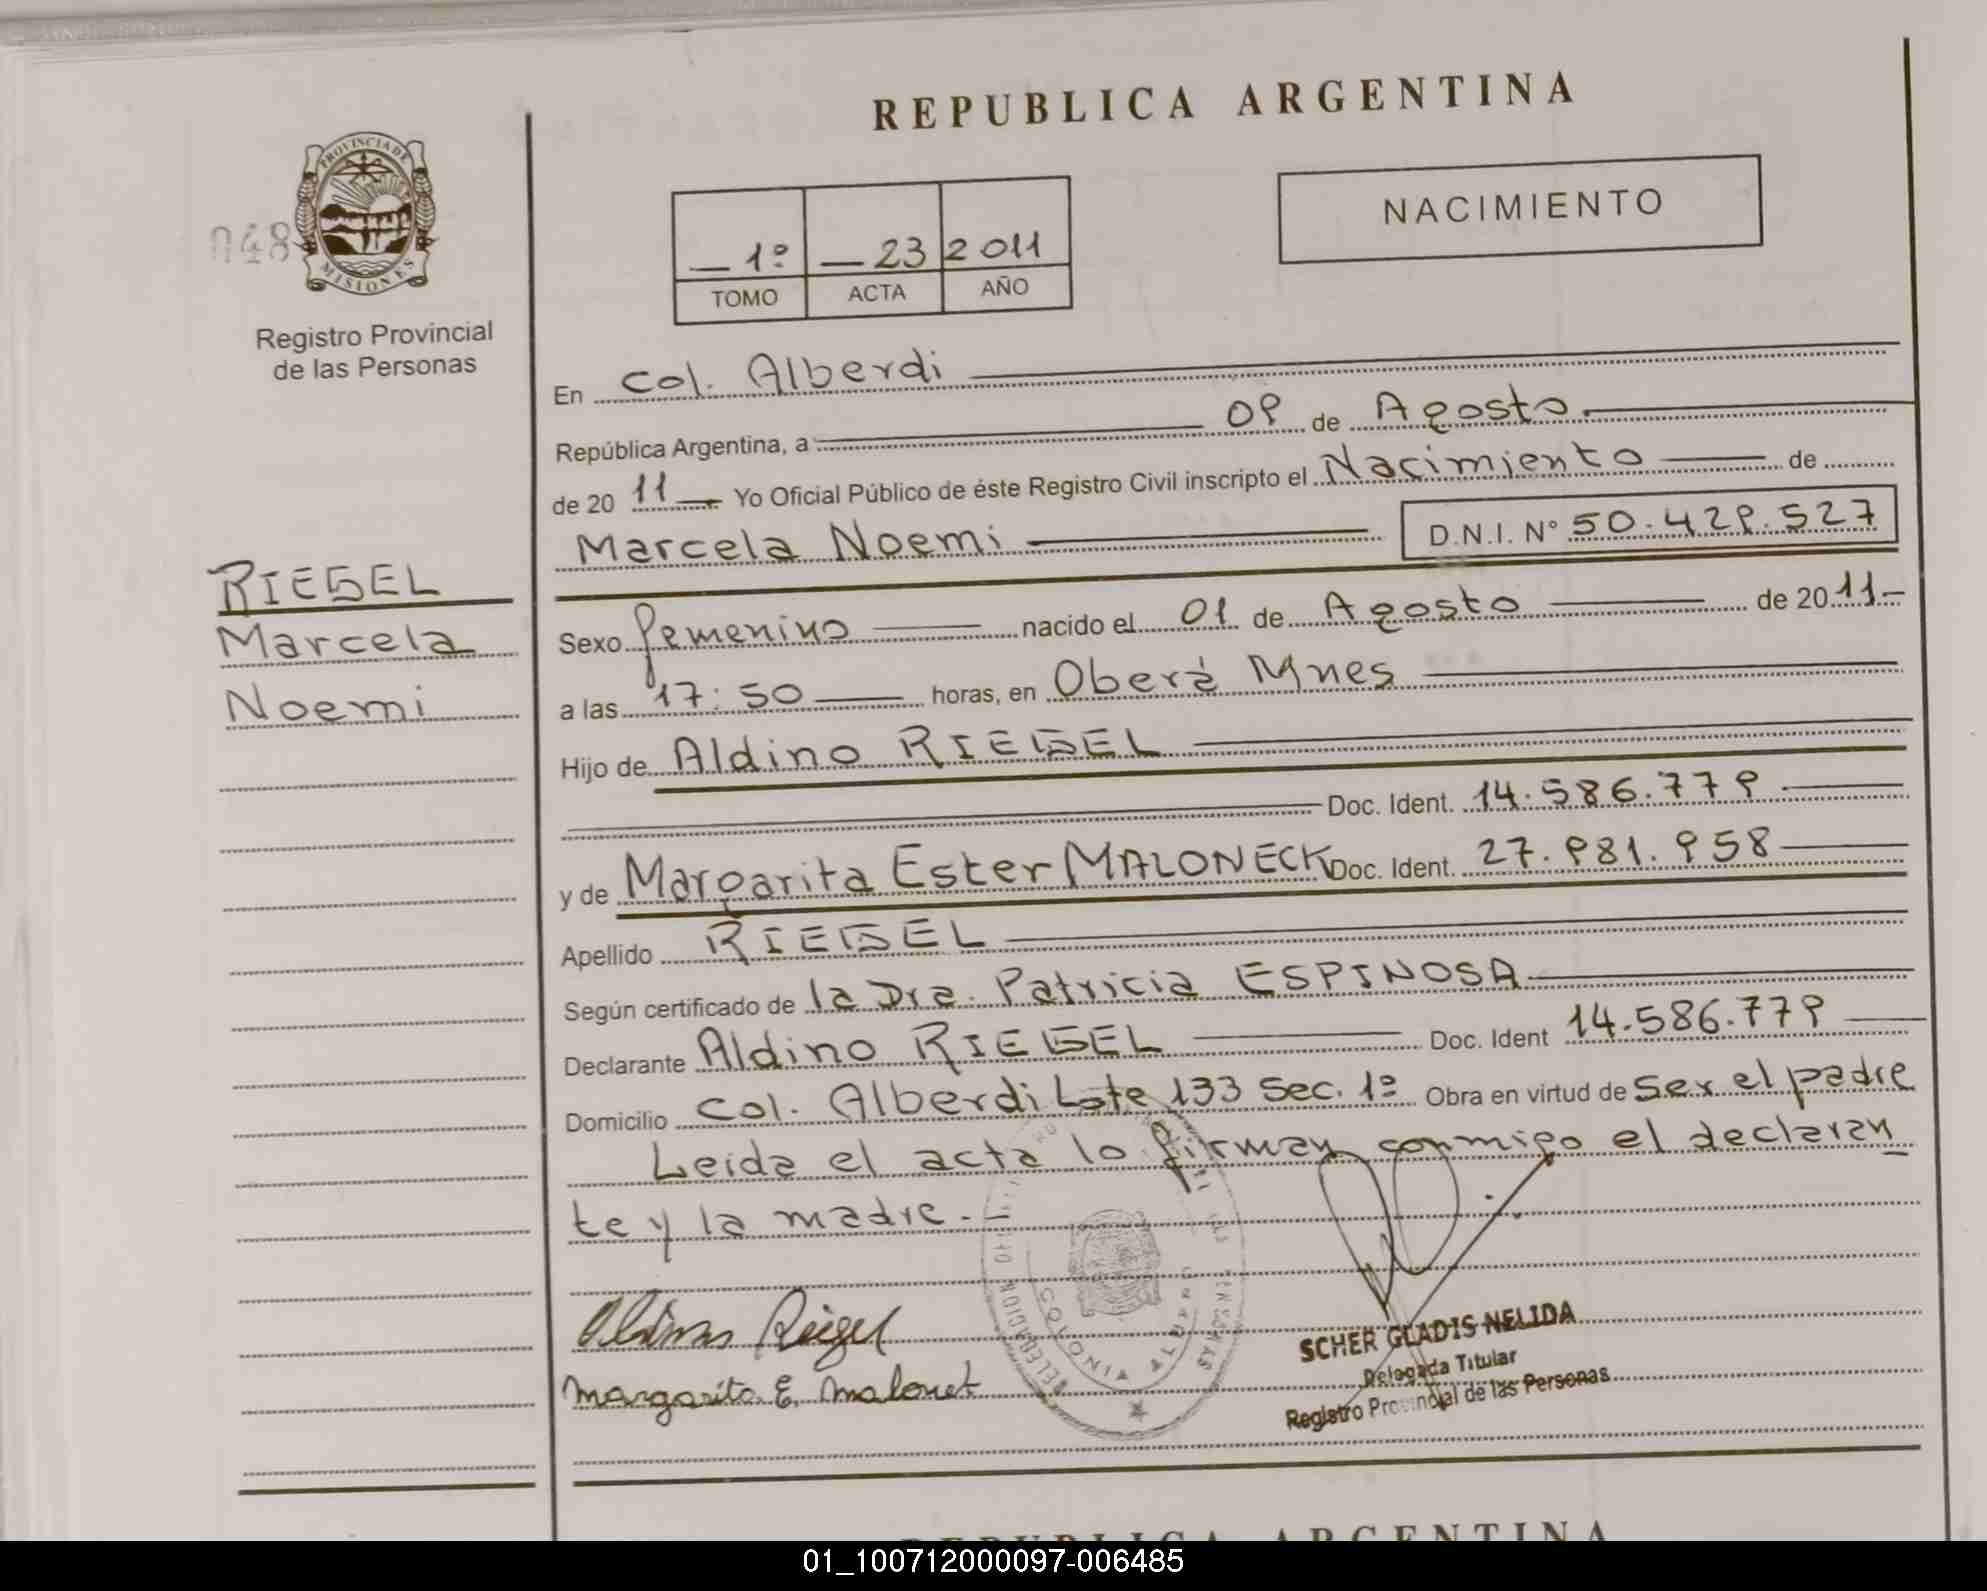 REPUBLICA ARGENTINA
PROVINCIA DE
MISIONES
048
Registro Provincial
de las Personas
NACIMIENTO
1º 23 2011
TOMO ACTA AÑO
En Col. Alberdi
República Argentina, a 09 de Agosto
de 20 11 Yo Oficial Público de éste Registro Civil inscripto el Nacimiento de
Marcela Noemi D.N.I. Nº 50.429.527
RIEGEL
Marcela
Noemi
Sexo femenino nacido el 01 de Agosto de 20 11
a las 17:50 horas, en Oberá Mnes
Hijo de Aldino RIEGEL
Doc. Ident. 14.586.779
y de Margarita Ester MALONECK Doc. Ident. 27.981.958
Apellido RIEGEL
Según certificado de la Dra. Patricia ESPINOSA
Declarante Aldino RIEGEL Doc. Ident 14.586.779
Domicilio Col. Alberdi Lote 133 Sec. 1º Obra en virtud de Ser el padre
Leida el acta lo firman conmigo el declaran
te y la madre.-
Margarita E. Malonek
SCHER GLADIS NELIDA
Delegada Titular
Registro Provincial de las Personas
REPUBLICA ARGENTINA
01_100712000097-006485